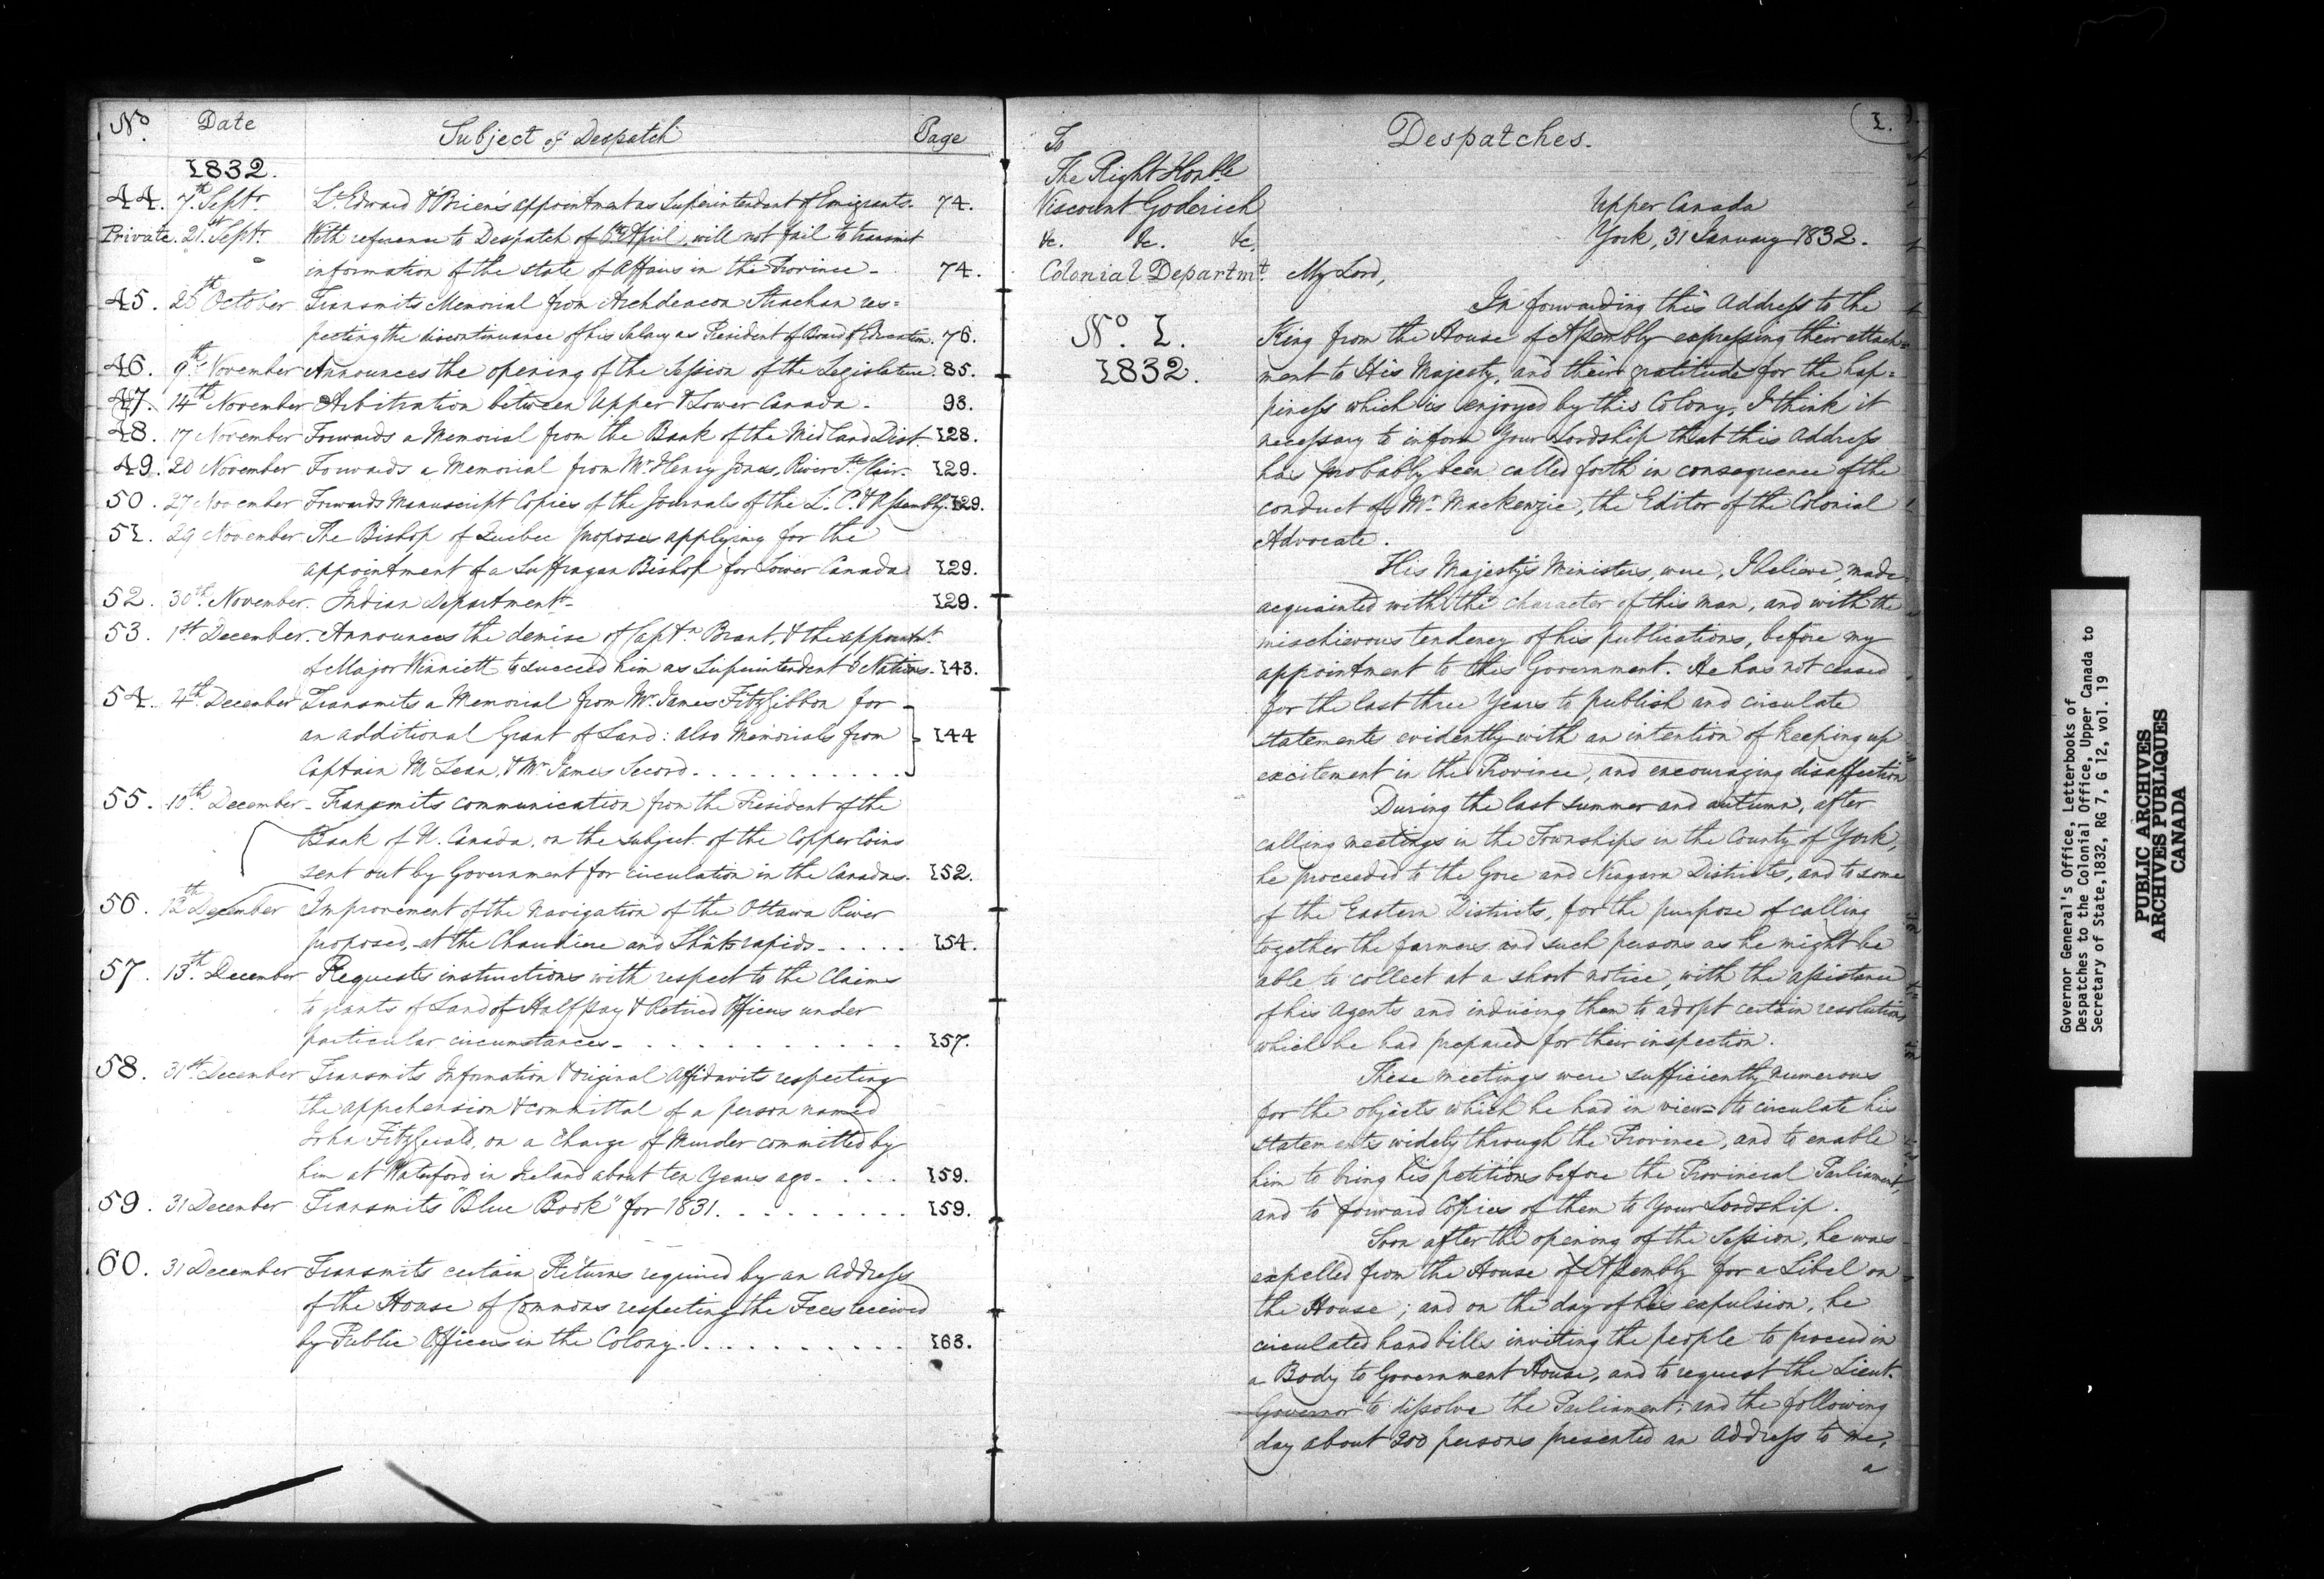 No. Date Subject of Despatch Page
1832.
44. 7th Septr. Lt. Edward O'Brien's appointment as Superintendent of Emigrants. 74.
Private. 21st Septr. With reference to Despatch of 6th April, will not fail to transmit
information of the state of Affairs in the Province - 74.
45. 25th October Transmits Memorial from Archdeacon Strachan res=
pecting the discontinuance of his Salary as President of Board of Education. 76.
46. 9th November Announces the opening of the Session of the Legislature. 85.
47. 14th November Arbitration between Upper & Lower Canada - 93.
48. 17 November Forwards a Memorial from the Bank of the Midland Dist. 128.
49. 20 November Forwards a Memorial from Mr. Henry Jones, River St. Clair. 129.
50. 27 November Forwards Manuscript Copies of the Journals of the L. C. & Assembly. 129.
51. 29 November The Bishop of Quebec proposes applying for the
appointment of a Suffragan Bishop for Lower Canada 129.
52. 30th November. Indian Department - 129.
53. 1st December. Announces the demise of Captn. Brant, & the appointmt.
of Major Winniett to succeed him as Superintendent 6 Nations. 143.
54. 4th December Transmits a Memorial from Mr. James FitzGibbon for
an additional Grant of Land: also Memorials from 144
Captain McLean, & Mr. James Secord
55. 10th December - Transmits communication from the President of the
Bank of U. Canada, on the subject of the Copper Coins
sent out by Government for circulation in the Canadas. 152.
56. 12th December Improvement of the Navigation of the Ottawa River
proposed, at the Chaudiere and Shâts rapids 154.
57. 13th December Requests instructions with respect to the Claims
to grants of Land of Half pay & Retired Officers under
particular circumstances 157.
58. 31st December Transmits Information & original Affidavits respecting
the apprehension & committal of a person named
John FitzGerald, on a Charge of Murder committed by
him at Waterford in Ireland about ten Years ago 159.
59. 31 December Transmits "Blue Book" for 1831 159.
60. 31 December Transmits certain Returns required by an Address
of the House of Commons respecting the Fees received
by Public Officers in the Colony 163.
Despatches.
1.
To
The Right Honble
Viscount Goderich
&c. &c. &c.
Colonial Departmt.
No. 1.
1832.
Upper Canada
York, 31 January 1832.
My Lord,
In forwarding this Address to the
King from the House of Assembly expressing their attach=
ment to His Majesty, and their gratitude for the hap=
piness which is enjoyed by this Colony, I think it
necessary to inform Your Lordship that this Address
has probably been called forth in consequence of the
conduct of Mr. Mackenzie, the Editor of the Colonial
Advocate.
His Majesty's Ministers, were, I believe, made
acquainted with the character of this man, and with the
mischievous tendency of his publications, before my
appointment to this Government. He has not ceased
for the last three Years to publish and circulate
statements evidently with an intention of keeping up
excitement in the Province, and encouraging disaffection
During the last summer and autumn, after
calling meetings in the Townships in the County of York,
he proceeded to the Gore and Niagara Districts, and to some
of the Eastern Districts, for the purpose of calling
together the farmers and such persons as he might be
able to collect at a short notice, with the assistance
of his Agents and inducing them to adopt certain resolutions
which he had prepared for their inspection.
These meetings were sufficiently numerous
for the objects which he had in view - to circulate his
statements widely through the Province, and to enable
him to bring his petitions before the Provincial Parliament,
and to forward Copies of them to Your Lordship.
Soon after the opening of the Session, he was
expelled from the House of Assembly for a Libel on
the House; and on the day of his expulsion, he
circulated hand bills inviting the people to proceed in
a Body to Government House, and to request the Lieut.
Governor to dissolve the Parliament; and the following
day about 300 persons presented an Address to me,
a
Governor General's Office, Letterbooks of
Despatches to the Colonial Office, Upper Canada to
Secretary of State, 1832, RG 7, G 12, vol. 19
PUBLIC ARCHIVES
ARCHIVES PUBLIQUES
CANADA